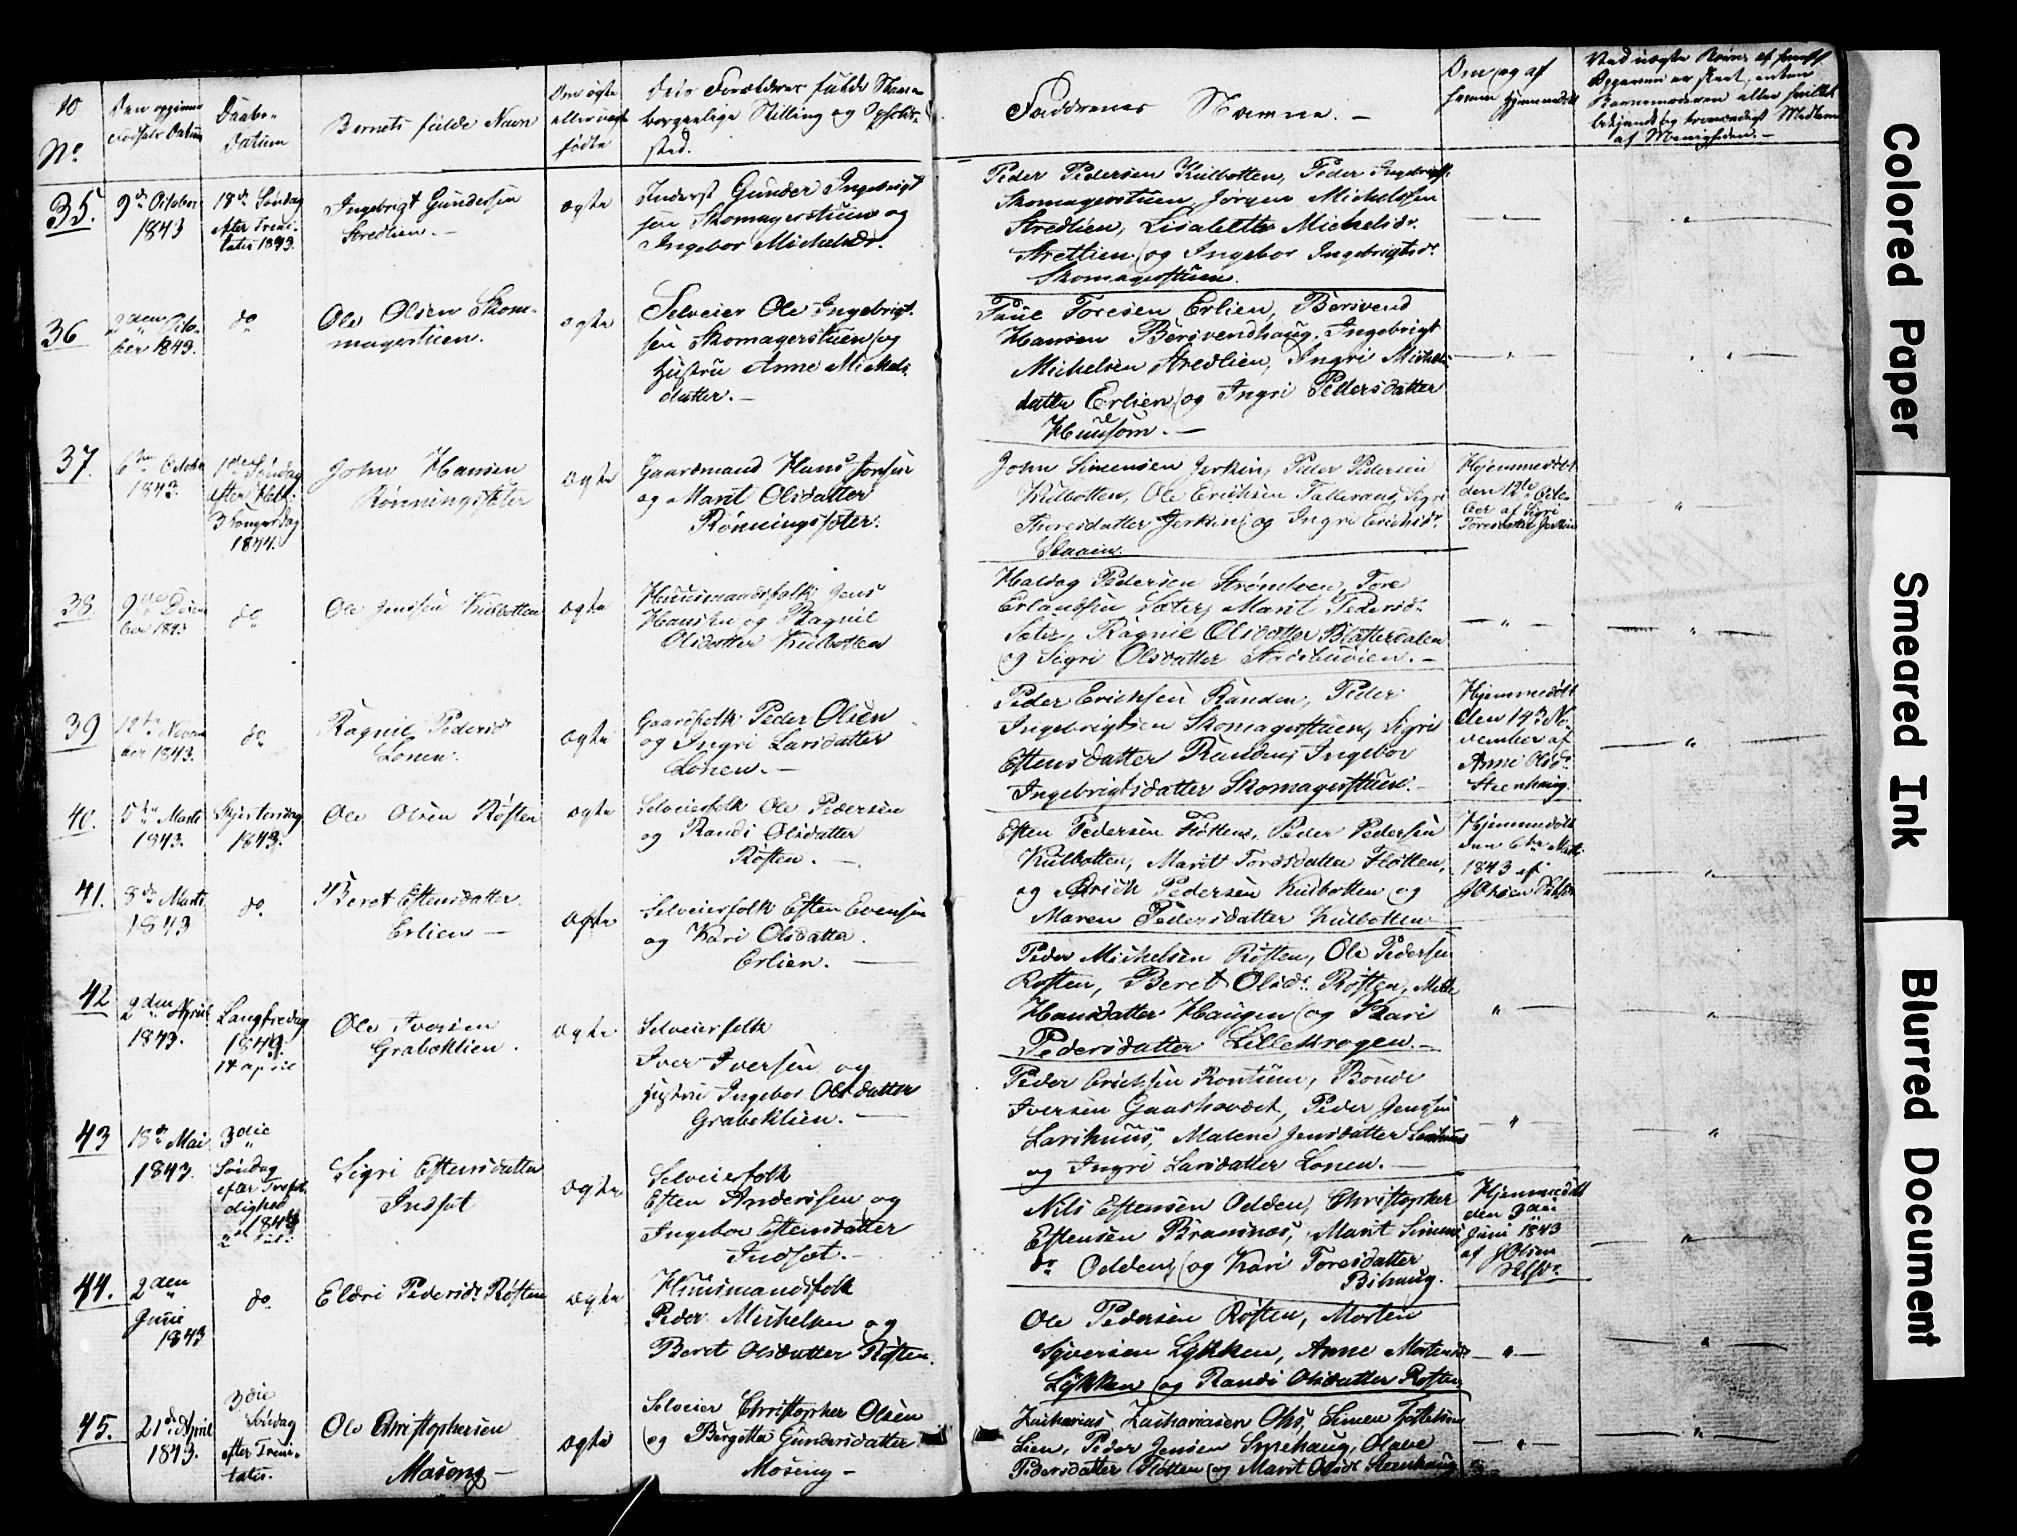 10
No
Den opgivne
Fødsels Datum
Daabs-
Datum
Barnets fulde Navn
Om ægte
eller uægte
fødte
Dets Forældres fulde Navne
borgerlige Stilling og Opholds-
sted.
Faddrenes Navne. -
Om og af
hvem hjemmedøbt
af Menigheden. -
35.
9de October
1843
18de Søndag
After Trini-
tatis 1843.
Ingebrigt Gundersen
Stredlien. -
ægte
Inderst Gunder Ingebrigt
sen Skomagerstuen og
Ingebor Michelsdr.
Peder Pedersen Kulbotten, Peder Ingebrigts.
Skomagerstuen, Jørgen Michelssen
Stredlien, Lisabeth Michelsdr.
Stretlien og Ingebor Ingebrigtsdr
Skomagerstuen.
36
2den Octo-
ber 1843.
do
Ole Olsen Skom-
magerstuen.
ægte
Selveier Ole Ingebrigt-
sen Skomagerstuen og
Hustru Anne Mickels-
datter. -
Paul Toresen Erlien, Berivend
Hansen Berivendhaug, Ingebrigt
Michelsen Stredlien, Ingri Michels-
datter Erlien og Ingri Pedersdatter
Huusom. -
37.
6te Octobr
1843.
1de Søndag
efter Hell:
3 Kongersdag
1844.
John Hansen
Rønningsæter
ægte
Gaardmand Hans Jonsen
og Marit Olsdatter
Rønningsæter.
John Simensen Jerkin, Peder Pedersen
Kulbotten, Ole Ericksen Talleraas, Sigri
Thoresdatter Jerkin og Ingri Erichsdr
Slaaen.
Hjemmedøbt
den 12te Octo-
ber af Sigri
Toresdatter Jerkin
38.
9de Decem
ber 1843
do
Ole Jenssen Kulbotten
ægte
Huusmandsfolk Jens
Hansen og Ragnil
Olsdatter Kulbotten
Haldog Pedersen Strømboen, Tore
Erlandsen Sæter, Marit Pedersdr
Sæter, Ragnil Olsdatter Blætterdalen
og Sigri Olsdatter -
39
12te Novem
ber 1843.
do
Ragnil Pedersdr
Lonen.
ægte
Gaardfolk Peder Olsen
og Ingri Larsdatter
Lonen. -
Peder Ericksen Randen, Peder
Ingebrigtsen Skomagerstuen, Sigri
Estensdatter Randen, Ingebor
Ingebrigtsdatter Skomagerstuen. -
Hjemmedøbt
den 14d No-
vember af
Anne Olsdr
Steenhaug.
40.
5te Marts
1843.
Skjertorsdag
1843.
Ole Olsen Røften
ægte
Selveierfolk Ole Pedersen
og Randi Olsdatter
Røften. -
Esten Pedersen Fløtten, Peder Pedersen
Kulbotten, Marit Toresdatter Fløtten,
og Erick Pedersen Kulbotten og
Maren Pedersdatter Kulbotten
Hjemmedøbt
den 6te Marts
1843 af
J Olsen
41.
8de Marts
1843
do
Beret Estensdatter
Erlien -
ægte
Selveierfolk Esten Evensen
og Kari Olsdatter
Erlien. -
Peder Michelsen Røften, Ole Pedersen
Røften, Beret Olsdr Røften, Mette
Hansdatter Haugen og Kari
Pedersdatter Lillekrogen. -
42
2den April
1843.
Langfredag
1843
14 april
Ole Iversen
Grabeklien.
ægte
Selveierfolk
Iver Iversen og
Hustru Ingebor Olsdatter
Grabeklien. -
Peder Ericksen Rontuen, Bonde
Iversen Gaashovdet, Peder Jenssen
Larshuus, Malene Jensdatter Larshuus
og Ingri Larsdatter Lonen. -
43
18de Mai
1843.
3die
Søndag
efter Trefol-
dighed
1843
2 Juli
Sigri Estensdatter
Indset
ægte
Selveierfolk
Esten Anderssen og
Ingebor Estensdatter
Indset. -
Nils Estensen Odden, Christopher
Estensen Brænnæs, Marit Simens-
dr Odden, og Kari Toresdatter
Bihaug.
Hjemmedøbt
den 3die
Juni 1843
af J Olsen
44.
2den
Junii
1843
do
Eldri Pedersdr Røften
ægte
Huusmandsfolk
Peder Michelsen og
Beret Olsdatter Røften.
Ole Pedersen Røften, Morten
Syversen Løkken, Anne Mortensdr
Løkken og Randi Olsdatter Røften
45.
21de April
1843.
3die
Søndag
efter Trini-
tatis.
Ole Christophersen
Moseng -
ægte
Selveier Christopher Olsen
og Bergitta Gundersdatter
Moseng -
Zacharias Zachariasen Ohs, Simen
Lien, Peder Jensen Smehaug, Olave
Pedersdatter Fløtten og Marit Olsdr Steenhaug
Colored Paper
Smeared Ink
Blurred Document